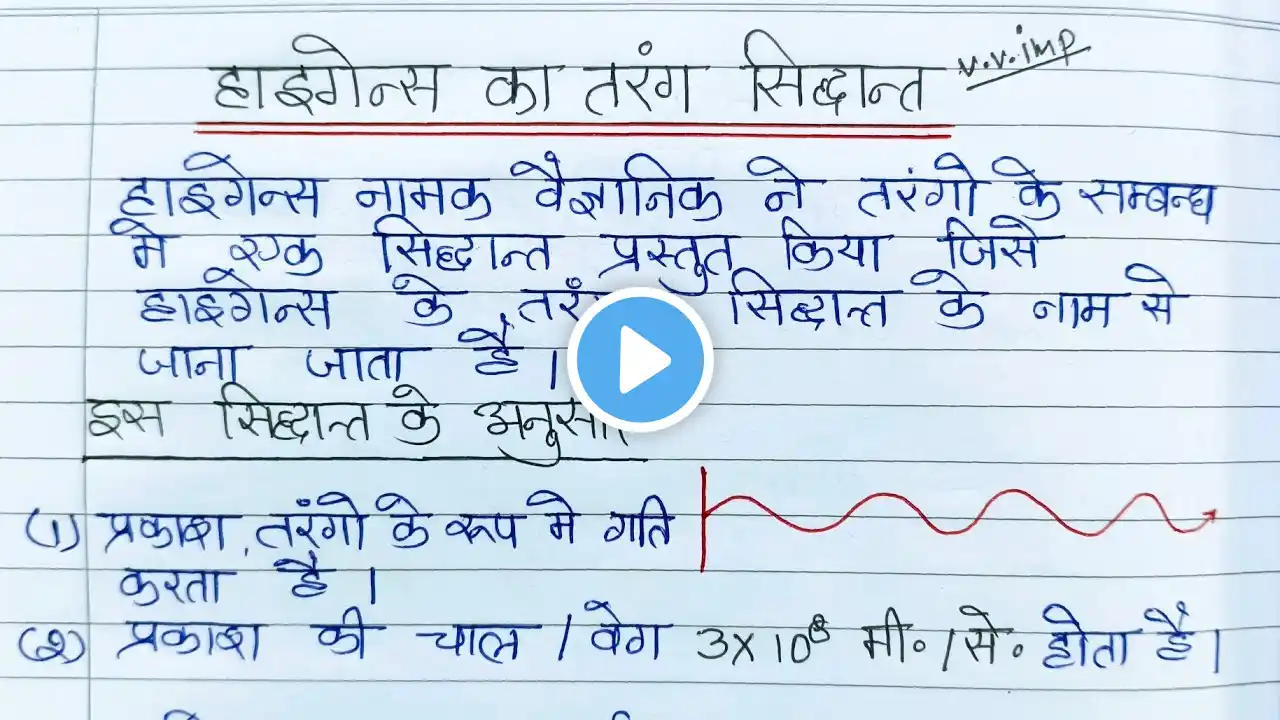 हाइगेन्स का तरंग सिद्धान्त v.v.imp
हाइगेन्स नामक वैज्ञानिक ने तरंगो के सम्बन्ध
मे एक सिद्धान्त प्रस्तुत किया जिसे
हाइगेन्स के सिद्धान्त के नाम से
जाना जाता है।
इस सिद्धान्त के अनुसार
(1) प्रकाश, तरंगो के रूप मे गति
करता है।
(2) प्रकाश की चाल / वेग 3×10⁸ मी॰/से॰ होता है।